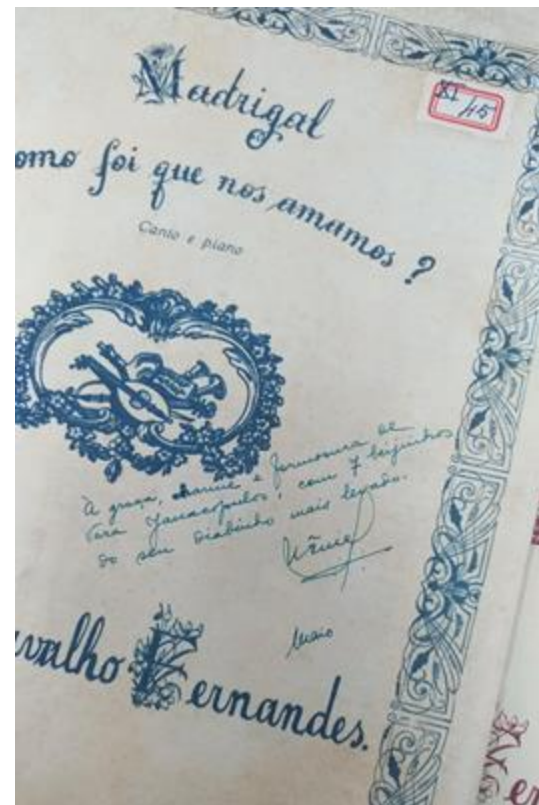 Madrigal
XI /45
omo foi que nos amamos ?
Canto e piano
À graça, charme e formosura de
Vera Janacopulos, com 7 beijinhos
do seu diabinho mais levado.
Maio
valho Fernandes.